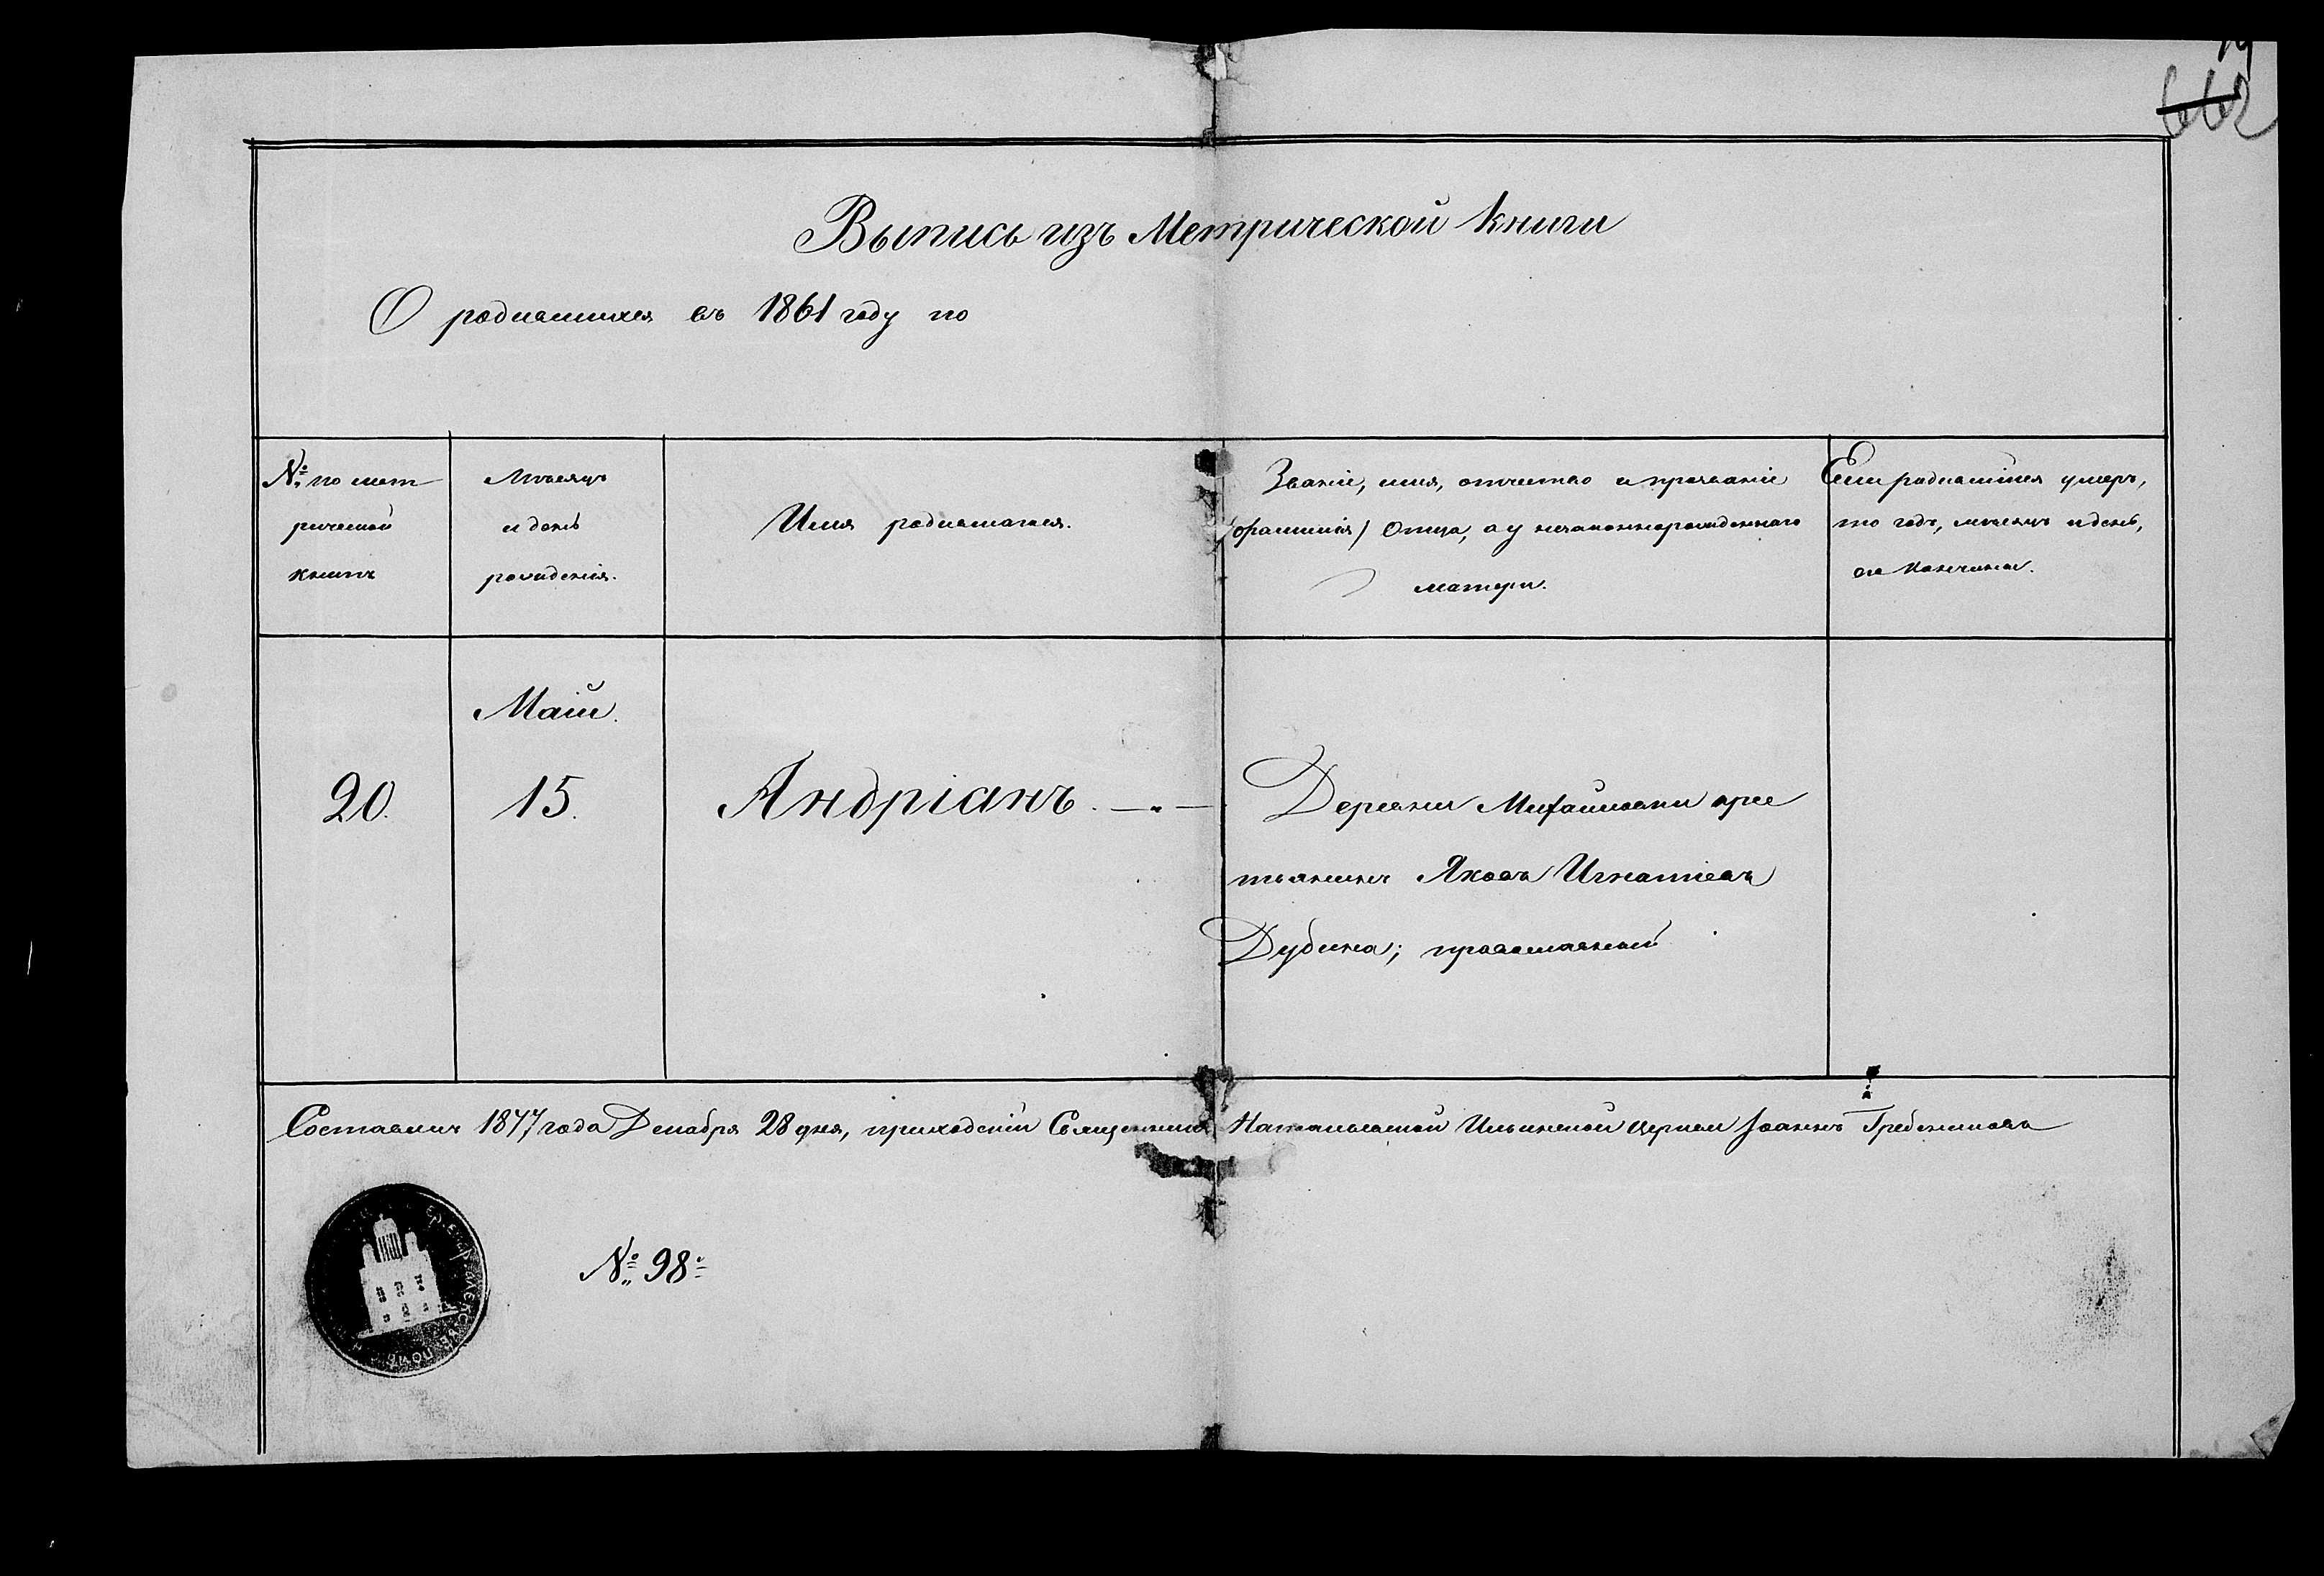 19
662
Выпись изъ Метрической книги
О родившихся въ 1861 году по
№ по мет
рической
книгѣ
Мѣсяцъ
и день
рожденія.
Имя родившагося.
Званіе, имя, отчество и прозваніе
(фамилія) Отца, а у незаконнорожденнаго
матери.
Если родившійся умеръ,
то годъ, мѣсяцъ и день,
его кончины.
Маій.
20.
15.
Андріанъ.
Деревни Михайловки крес
тьянинъ Яковъ Игнатіевъ
Дубина; православный
Составилъ 1877 года Декабря 28 дня, приходскій Священникъ Натальевской Ильинской церкви Іоаннъ Гребенниковъ
№ 98